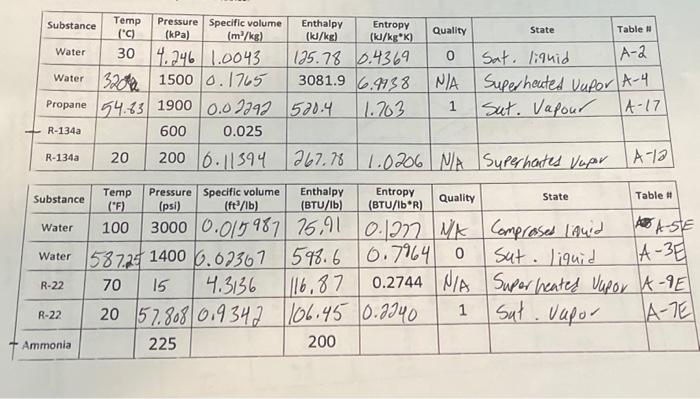 Substance Temp (°C) Pressure (kPa) Specific volume (m³/kg) Enthalpy (kJ/kg) Entropy (kJ/kg*K) Quality State Table #
Water 30 4.246 1.0043 125.78 0.4369 0 Sat. liquid A-2
Water 320 1500 0.1765 3081.9 6.9938 N/A Superheated Vapor A-4
Propane 54.83 1900 0.02292 520.4 1.703 1 Sat. Vapour A-17
R-134a 600 0.025
R-134a 20 200 0.11394 267.78 1.0206 N/A Superheated Vapor A-12
Substance Temp (°F) Pressure (psi) Specific volume (ft³/lb) Enthalpy (BTU/lb) Entropy (BTU/lb*R) Quality State Table #
Water 100 3000 0.015987 75.91 0.1277 N/A Compressed liquid A-5E
Water 587.25 1400 0.02367 598.6 0.7964 0 Sat. liquid A-3E
R-22 70 15 4.3136 116.87 0.2744 N/A Superheated Vapor A-9E
R-22 20 57.808 0.9342 106.45 0.2240 1 Sat. Vapor A-7E
Ammonia 225 200